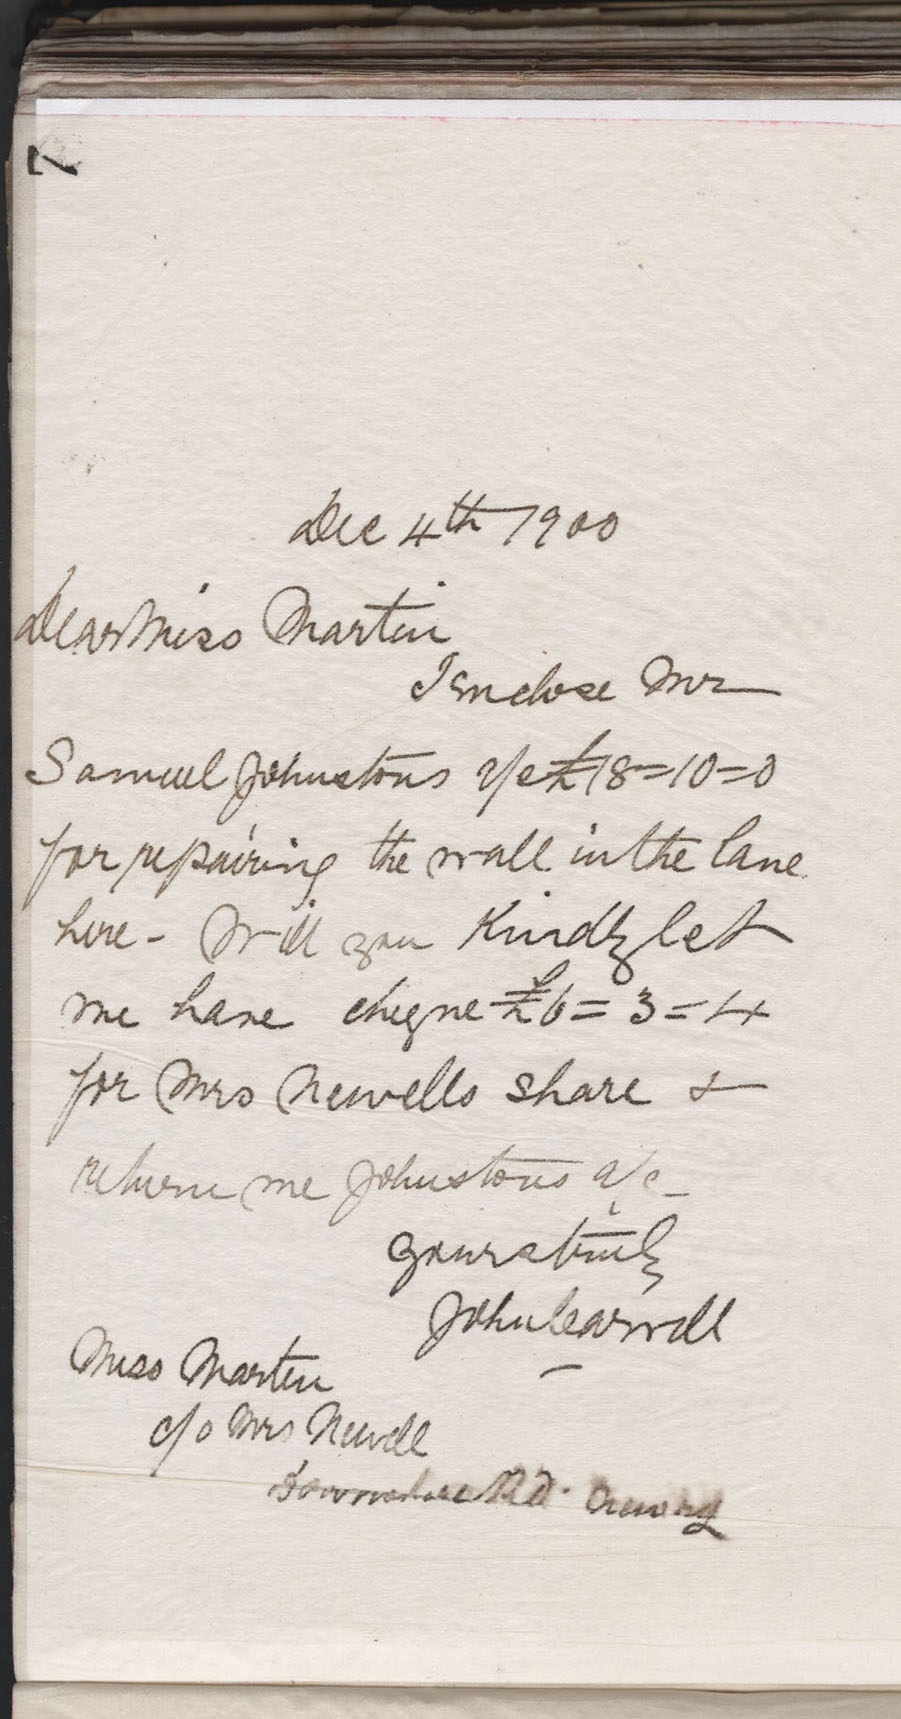 7
Dec 4th 1900
Dear Miss Martin
I Enclose Mr
Samuel Johnstons a/c £18=10=0
for repairing the wall in the lane
here - Will you Kindly let
me have cheque £6=3=4
for Mrs Newells share &
return me Johnstons a/c -
yours truly
John Carroll
Miss Martin
c/o Mrs Newell
Rd. Newry